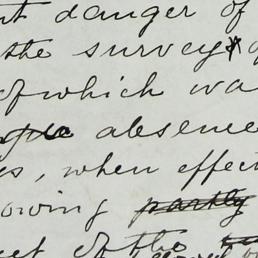 nt danger of
the survey of
of which wa
absence
s, when effect
owing partly
et of the